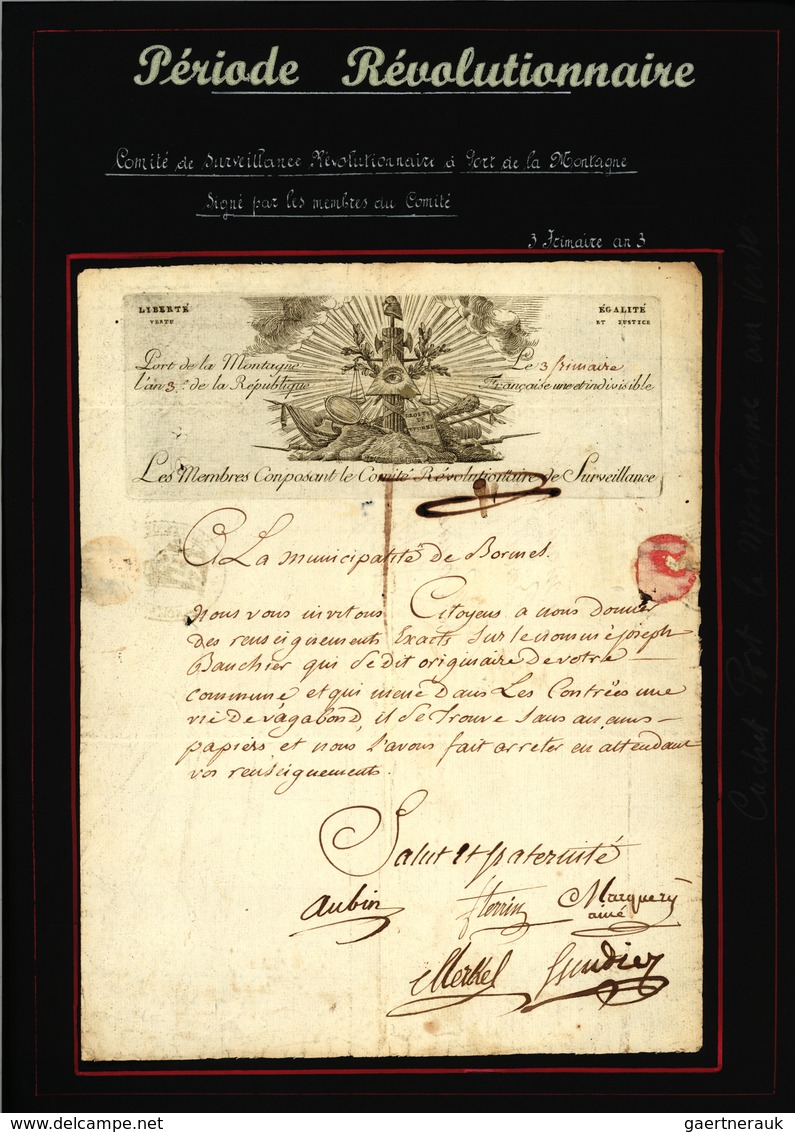 Période Révolutionnaire
Comité de Surveillance Révolutionnaire à Port de la Montagne
Signé par les membres du Comité
3 Frimaire an 3
LIBERTÉ
VERTU
ÉGALITÉ
ET JUSTICE
Port de la Montagne Le 3 frimaire
l'an 3.e de la République Française une et indivisible
DROITS DE L'HOMME
Les Membres Conposant le Comité Révolutionnaire de Surveillance
A La municipalité de Bormes.
Nous vous invitons Citoyens a nous donner
des renseignements Exacts sur le nommé joseph
Bauchier qui se dit originaire de votre
commune et qui mene dans Les Contrées une
vie de vagabond, il se trouve sans aucuns
papiers, et nous l'avons fait arreter en attendant
vos renseignements.
Salut et fraternité
Aubin Marquery
ainé
Merkel
Cachet Port la Montagne au verso
gaertnerauk